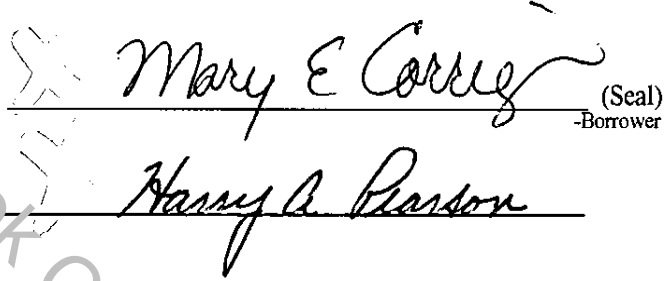 Mary E Corrig
(Seal)
-Borrower
Harry A Pearson